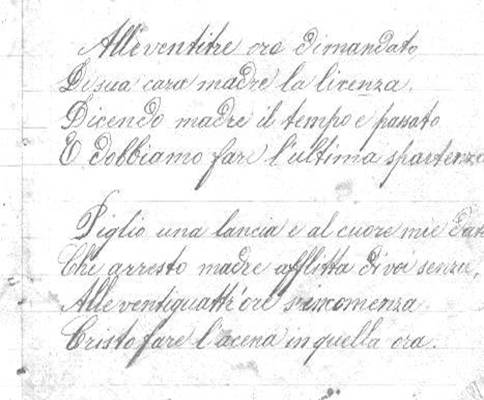 Alleventitre ore dimandato,
Di sua cara madre la licenza.
Dicendo madre il tempo e passato
E dobbiamo fare l'ultima spartenza
Piglio una lancia e al cuore mie
Che arresto madre afflitta di voi senza,
Alle ventiquattr'ore s'incomenza
Cristo fare l'acena in quella ora.